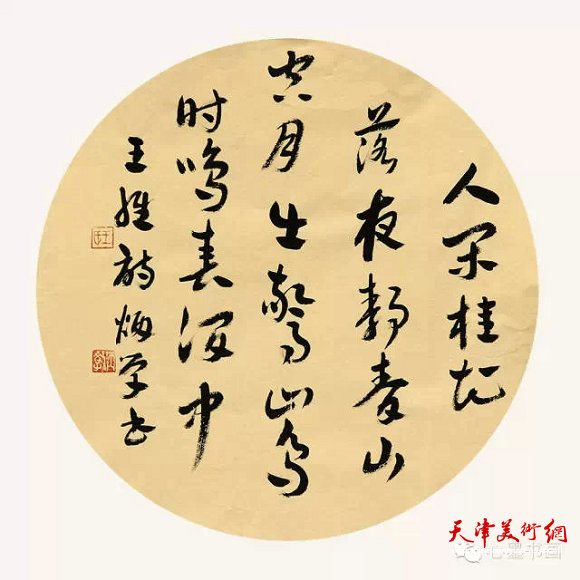 人闲桂花
落夜静春山
空月出惊山鸟
时鸣春涧中
王维诗炳学书
天津美術網